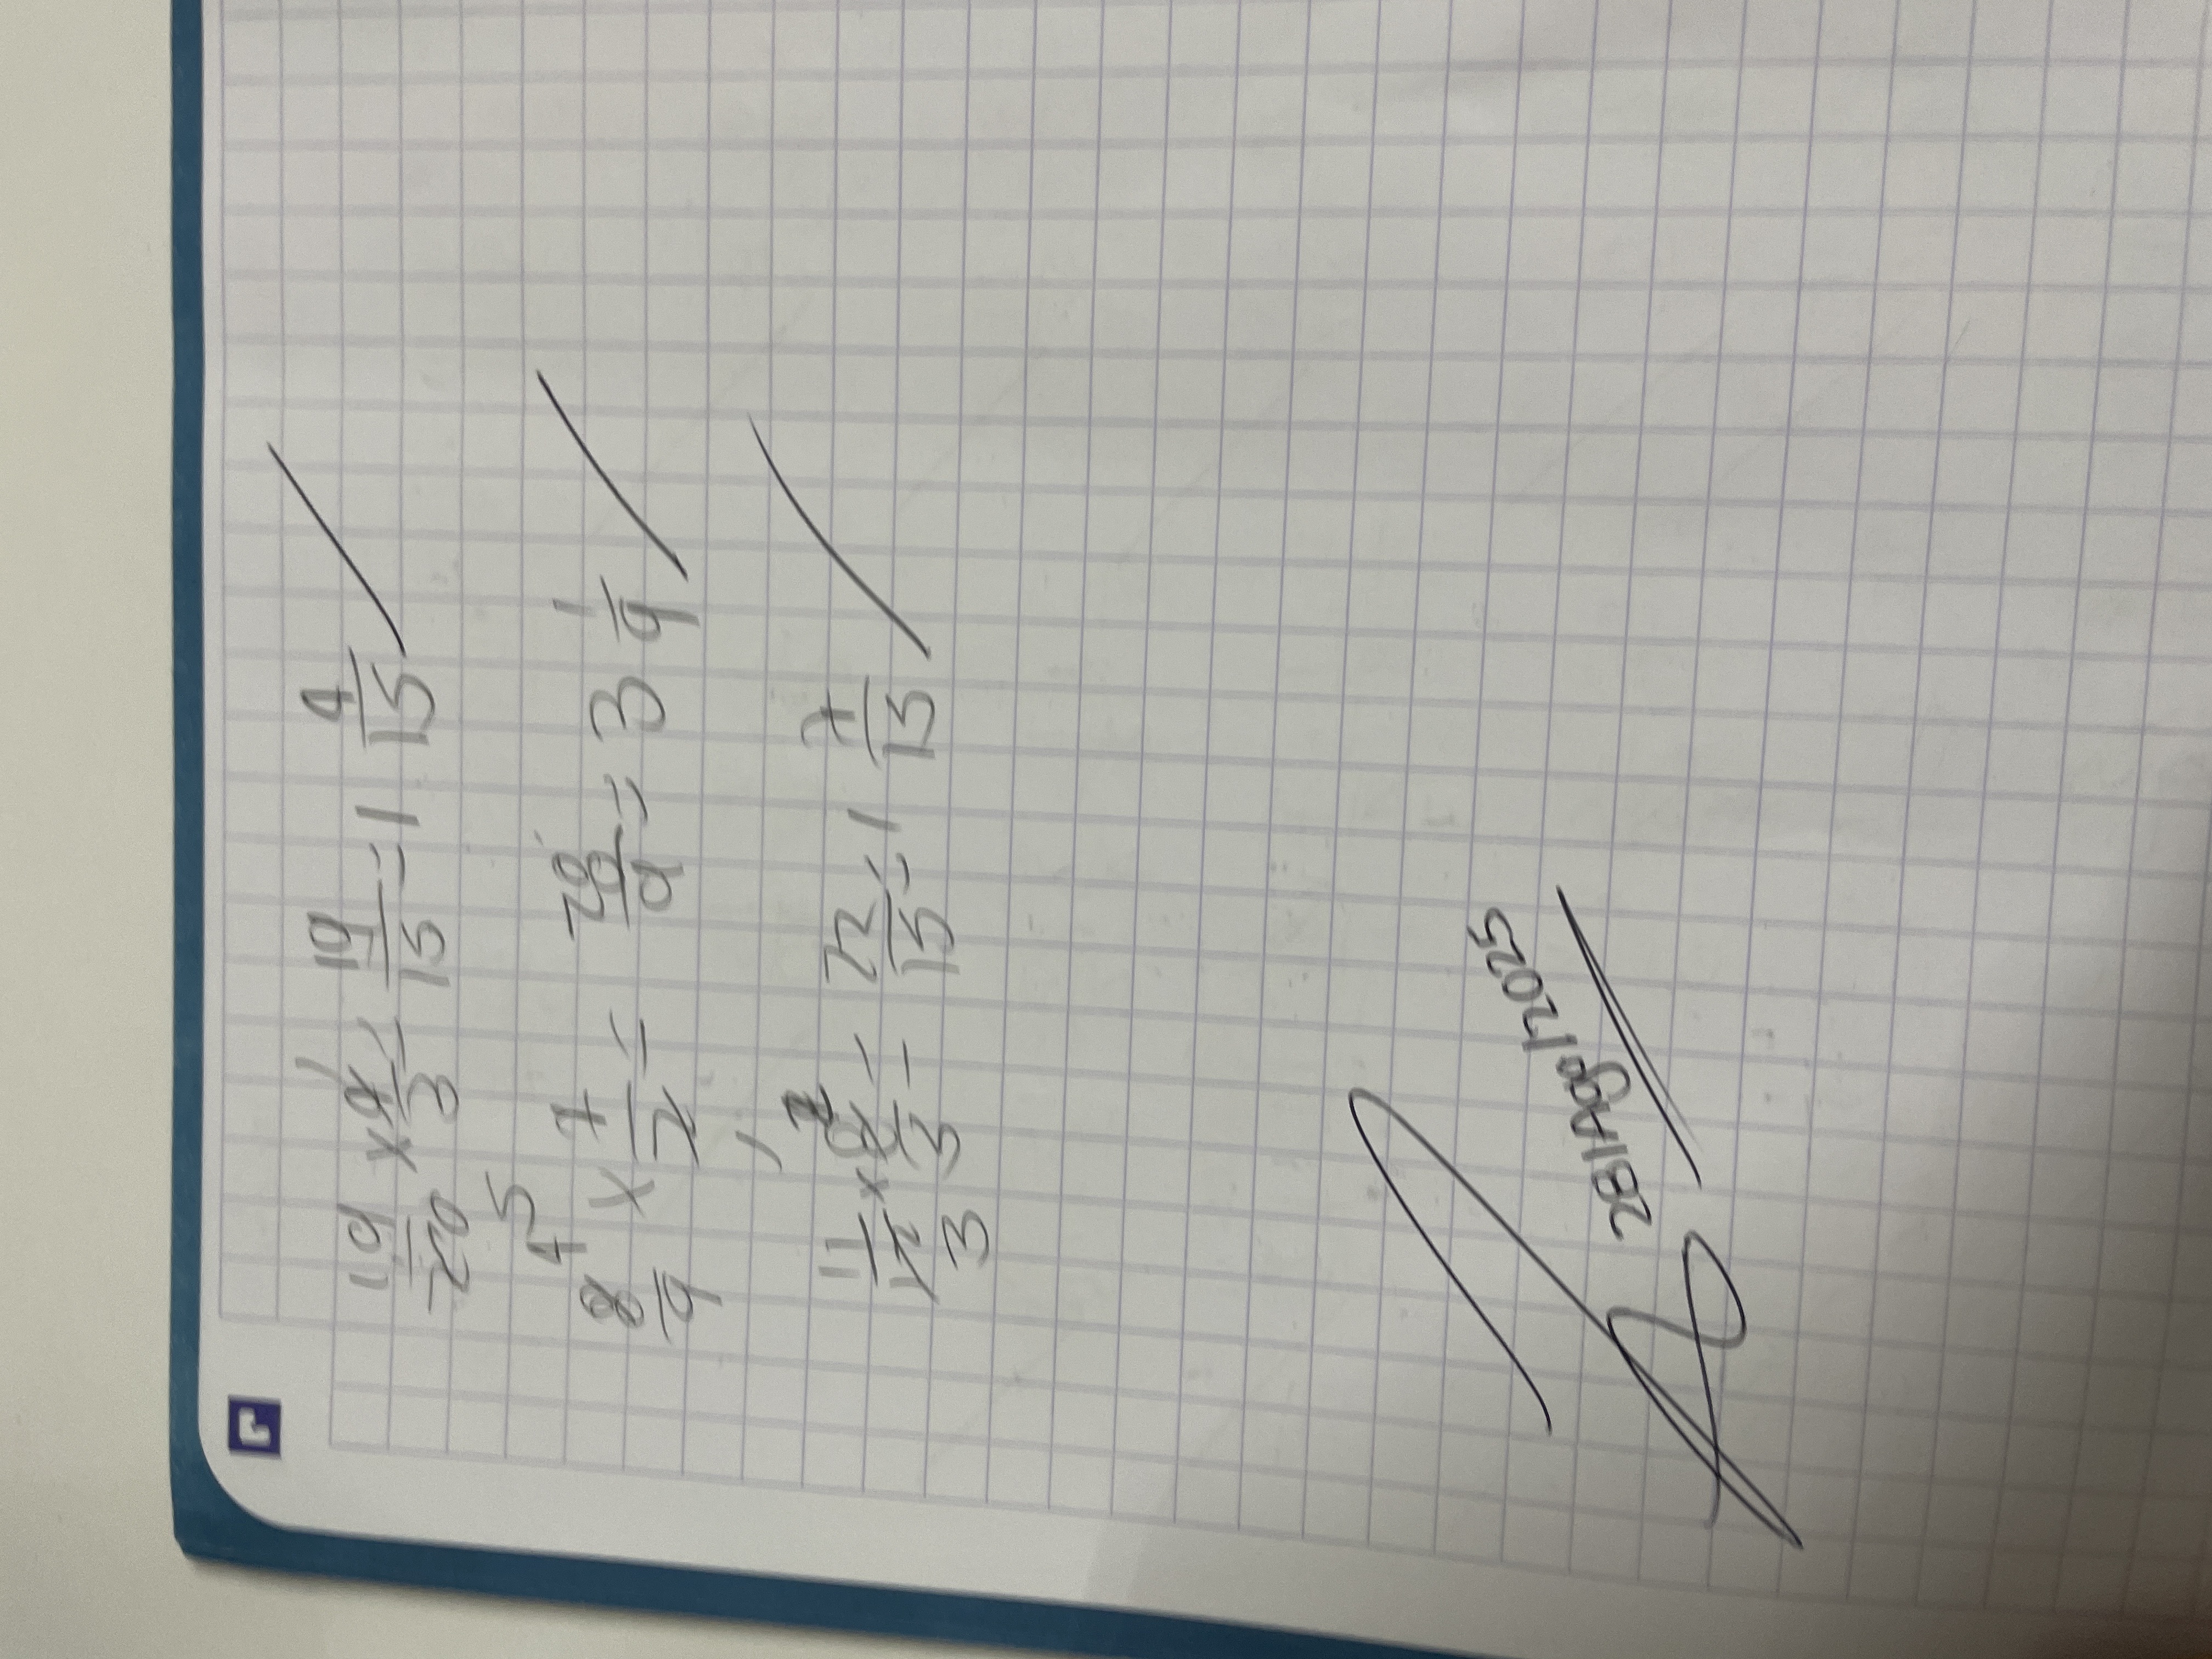 19/20 x 4/3 = 19/15 = 1 4/15
5
8/9 x 7/2 = 28/9 = 3 1/9
4 1
11/12 x 8/5 = 22/15 = 1 7/15
3 2
28/Ago/2025